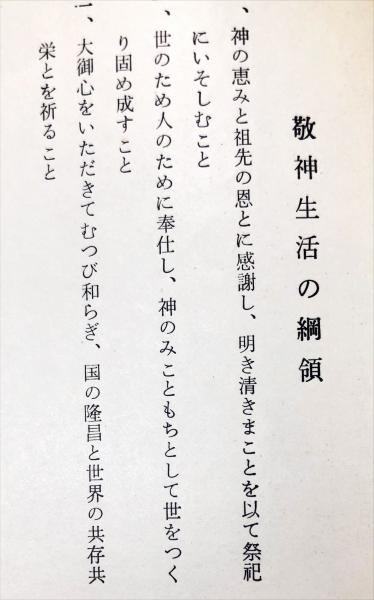 敬神生活の綱領
、神の恵みと祖先の恩とに感謝し、明き清きまことを以て祭祀
にいそしむこと
、世のため人のために奉仕し、神のみこともちとして世をつく
り固め成すこと
一、大御心をいただきてむつび和らぎ、国の隆昌と世界の共存共
栄とを祈ること